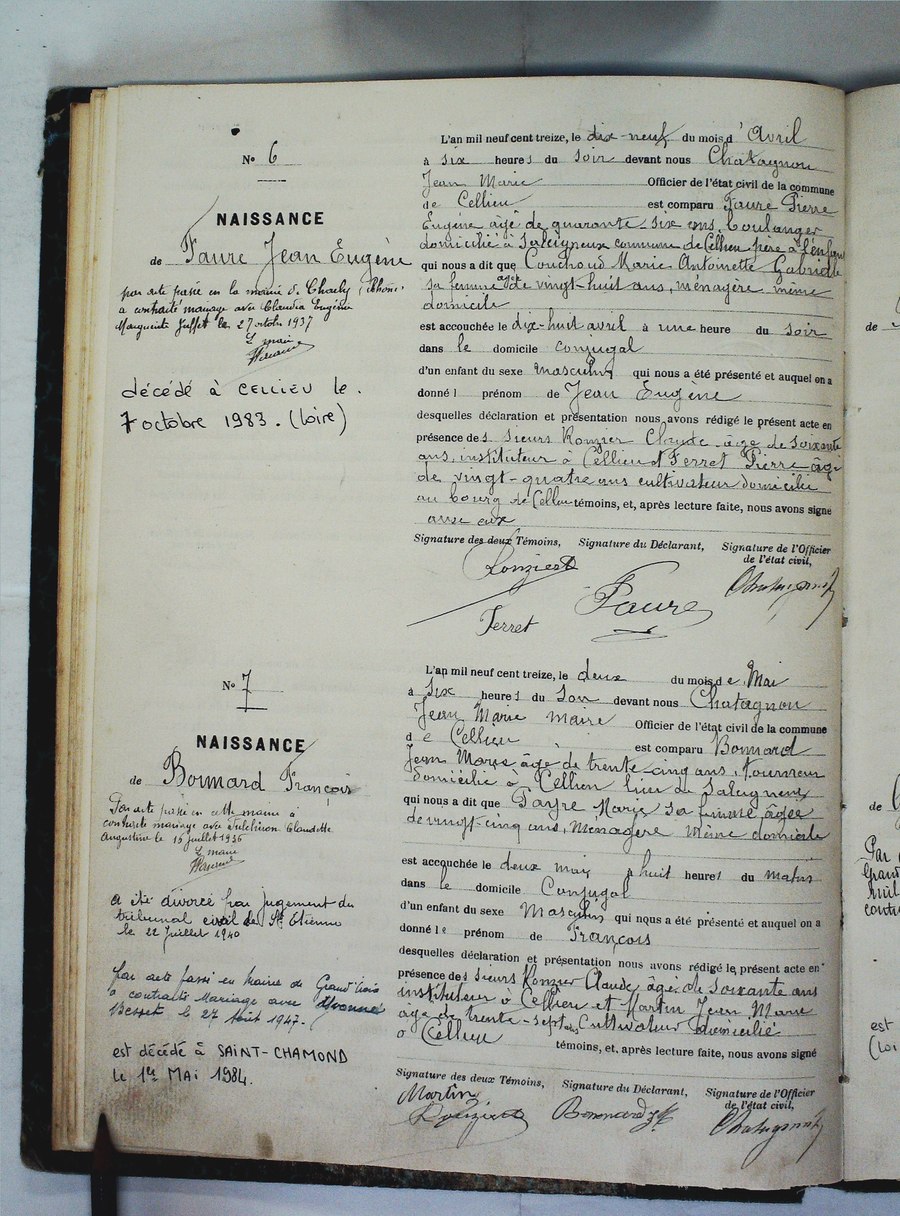 N° 6
NAISSANCE
de Faure Jean Eugène
par acte passé en la mairie de Charly (Rhône)
a contracté mariage avec Claudia Eugénie
Marguerite Juffet le 27 octobre 1937
Le maire
décédé à CELLIEU le
7 octobre 1983. (Loire)
L'an mil neuf cent treize, le dix-neuf du mois d'Avril
à six heures du soir devant nous Chatagnon
Jean Marie Officier de l'état civil de la commune
de Cellieu est comparu Faure Pierre
Eugène âgé de quarante-six ans, boulanger
domicilié à Salcigneux commune de Cellieu père à l'enfant
qui nous a dit que Couchoud Marie Antoinette Gabrielle
sa femme âgée de vingt-huit ans, ménagère même
domicile
est accouchée le dix-huit avril à une heure du soir
dans le domicile conjugal
d'un enfant du sexe masculin qui nous a été présenté et auquel on a
donné l prénom de Jean Eugène
desquelles déclaration et présentation nous avons rédigé le présent acte en
présence des sieurs Ronzier Claude âgé de soixante
ans, instituteur à Cellieu et Ferret Pierre âgé
de vingt-quatre ans cultivateur domicilié
au bourg de Cellieu témoins, et, après lecture faite, nous avons signé
avec eux
Signature des deux Témoins, Signature du Déclarant, Signature de l'Officier
de l'état civil,
Ronzier Faure Chatagnon
Ferret
N° 7
NAISSANCE
de Bonnard François
Par acte passé en cette mairie a
contracté mariage avec Claudette
Augustine le 15 juillet 1936
Le maire
a été divorcé par jugement du
tribunal civil de St Etienne
le 22 Juillet 1940
par acte passé en Mairie de Grand'Croix
a contracté Mariage avec Yvonne
Besset le 27 Août 1947.
est décédé à SAINT-CHAMOND
le 1er MAI 1984.
L'an mil neuf cent treize, le deux du mois de Mai
à six heures du soir devant nous Chatagnon
Jean Marie maire Officier de l'état civil de la commune
de Cellieu est comparu Bonnard
Jean Marie âgé de trente cinq ans, Tourneur
domicilié à Cellieu lieu de Salcigneux
qui nous a dit que Payre Marie sa femme âgée
de vingt-cinq ans, Ménagère même domicile
est accouchée le deux mai à huit heures du matin
dans le domicile Conjugal
d'un enfant du sexe Masculin qui nous a été présenté et auquel on a
donné le prénom de François
desquelles déclaration et présentation nous avons rédigé le présent acte en
présence des sieurs Ronzier Claude âgé de soixante ans
instituteur à Cellieu et Martin Jean Marie
âgé de trente-sept ans Cultivateur domicilié
à Cellieu témoins, et, après lecture faite, nous avons signé
Signature des deux Témoins, Signature du Déclarant, Signature de l'Officier
de l'état civil,
Martin
Ronzier Bonnard Chatagnon
de
de
Par
Grand
est
(Loi